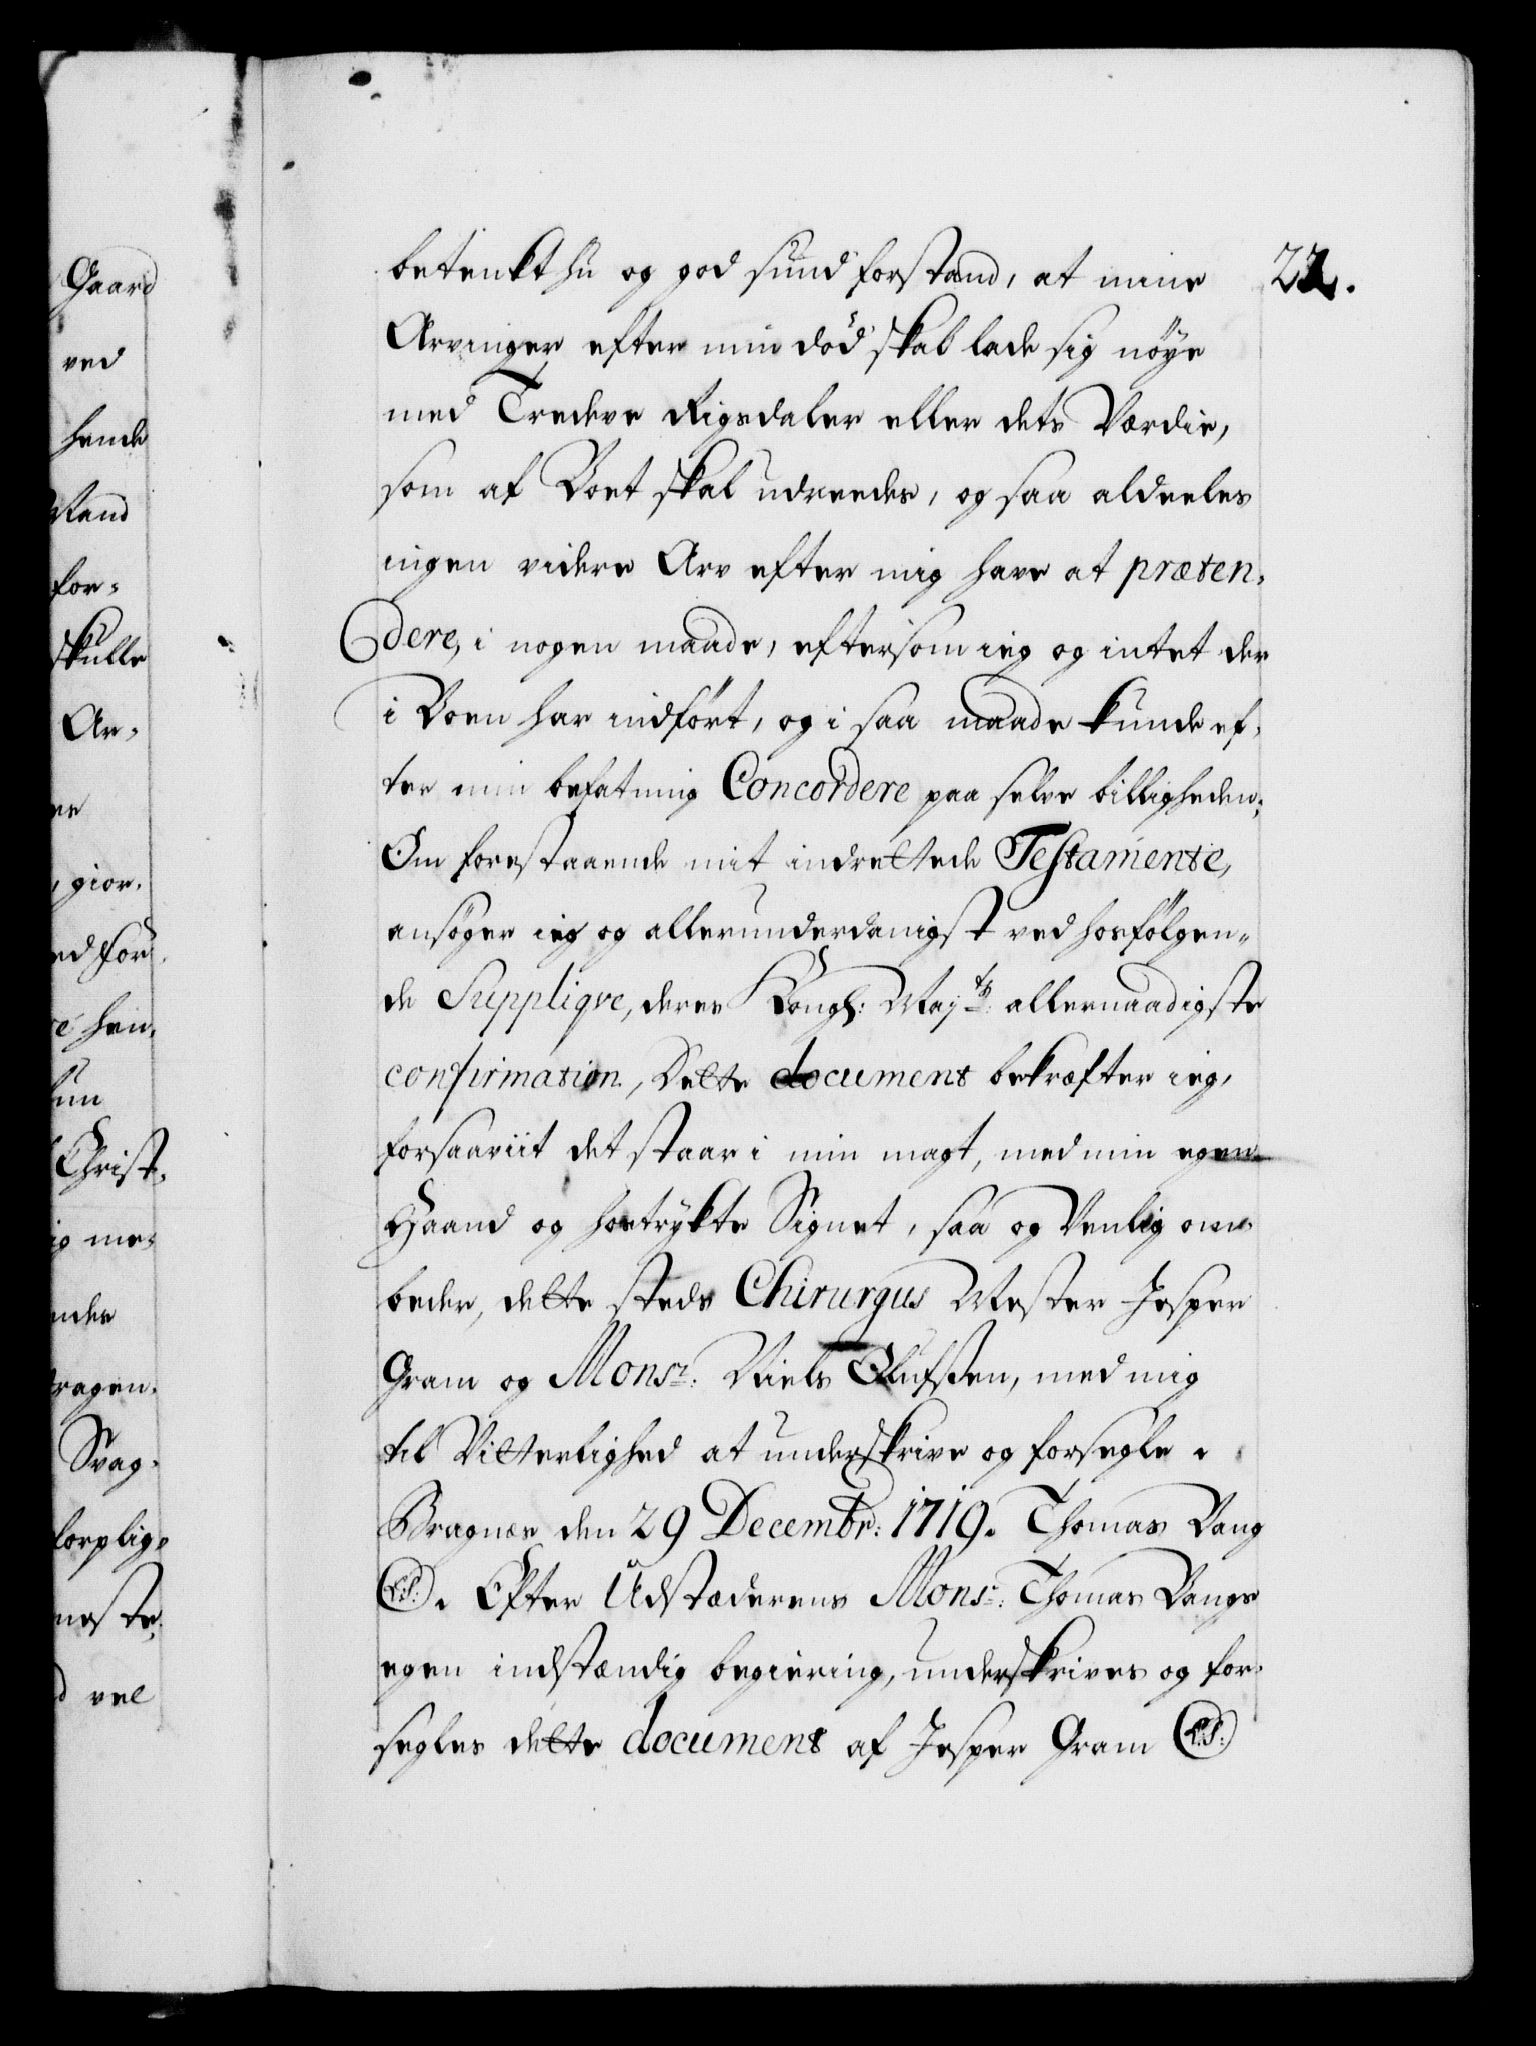 Gaard
ved
hende
stand
for-
skulle
Ar-
es
, gior-
ed for-
hen-
kun
Christ-
ig me-
ndes
ragen-
Svag-
forplig-
meste,
d vel
22.
betenkt hu og god sund forstand, at mine
Arvinger efter min död skal lade sig nöye
med Tredeve Rigsdaler eller dets Værdie,
som af Boet skal udreedes, og saa aldeeles
ingen videre Arv efter mig have at præten-
dere, i nogen maade, eftersom ieg og intet der
i Boen har indfört, og i saa maade kunde ef-
ter min befatning Concordere paa selve billigheden.
Om forestaaende mit indrettede Testamente,
ansöger ieg og allerunderdanigst ved hosfölgen-
de Suppliqve, deres Kongl: Majts: allernaadigste
confirmation, Dette document bekræfter ieg,
forsaaviit det staar i min magt, med min egen
Haand og hostrykte Signet, saa og Venlig om-
beder, dette steds Chirurgus Mester Jesper
Gram og Monsr: Niels Olufsen, med mig
til Vitterlighed at underskrive og forsegle.
Bragnes den 29 Decembr: 1719. Thomas Vang
(L.S.). Efter Udstæderens Monsr: Thomas Vangs
egen indstændig begiering, underskrives og for-
segles dette document af Jesper Gram (L.S.)